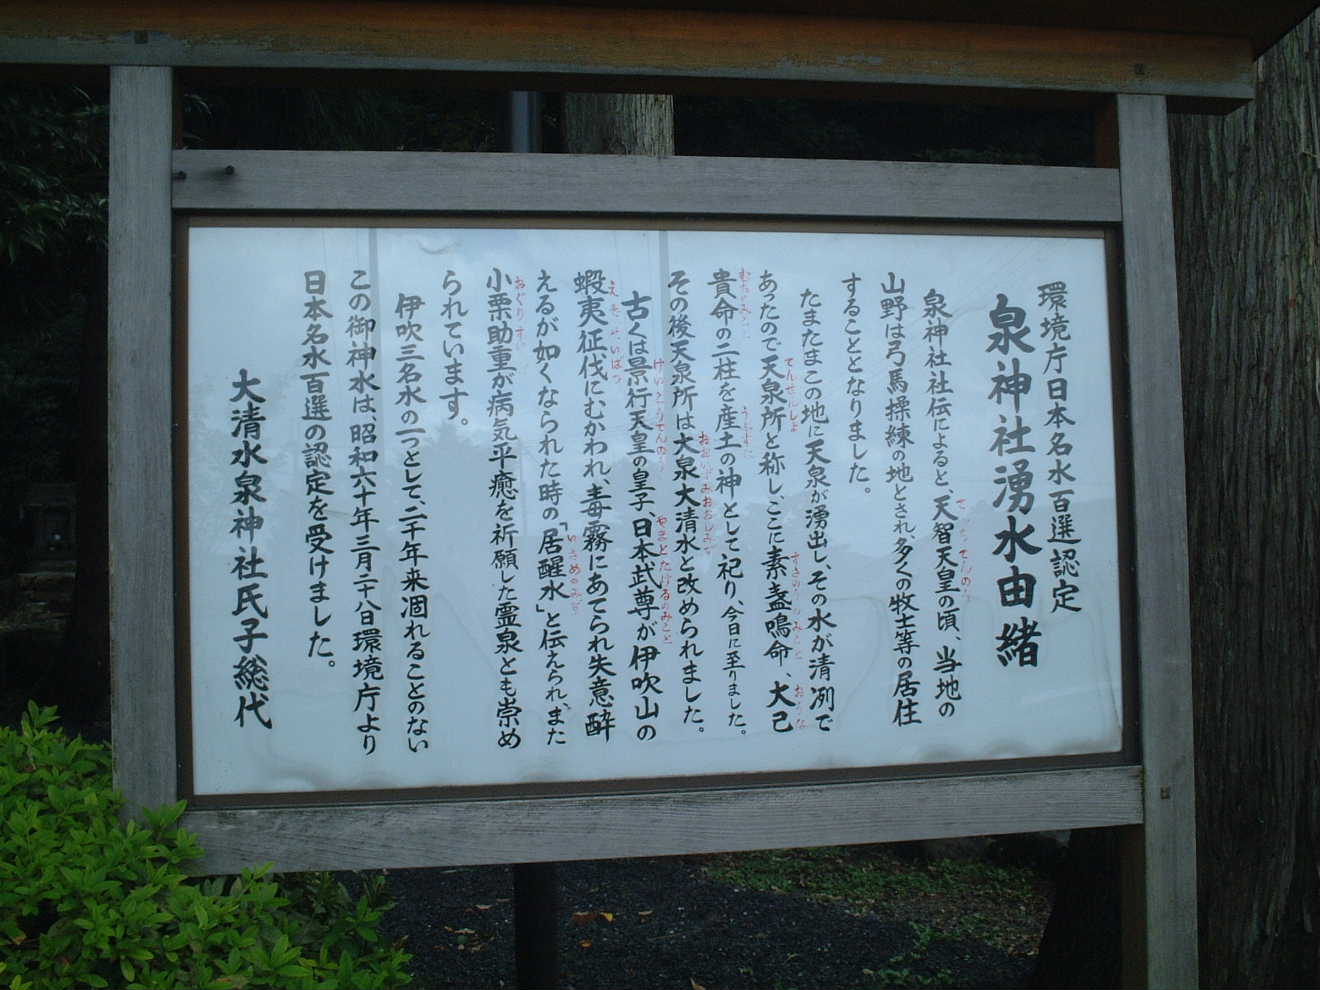 環境庁日本名水百選認定
泉神社湧水由緒
泉神社社伝によると天智天皇の頃、当地の
山野は弓馬操練の地とされ、多くの牧士等の居住
することとなりました。
たまたまこの地に天泉が湧出し、その水が清冽で
あったので天泉所と称しここに素盞鳴命、大己
貴命の二柱を産土の神として祀り、今日に至りました。
その後天泉所は大泉大清水と改められました。
古くは景行天皇の皇子、日本武尊が伊吹山の
蝦夷征伐に、むかわれ、毒霧にあてられ失意酔
えるが如くなられた時の「居醒水」と伝えられ、また
小栗助重が病気平癒を祈願した霊泉とも崇め
られています。
伊吹三名水の一つとして、二千年来凅れることのない
この御神水は、昭和六十年三月二十八日環境庁より
日本名水百選の認定を受けました。
大清水泉神社氏子総代